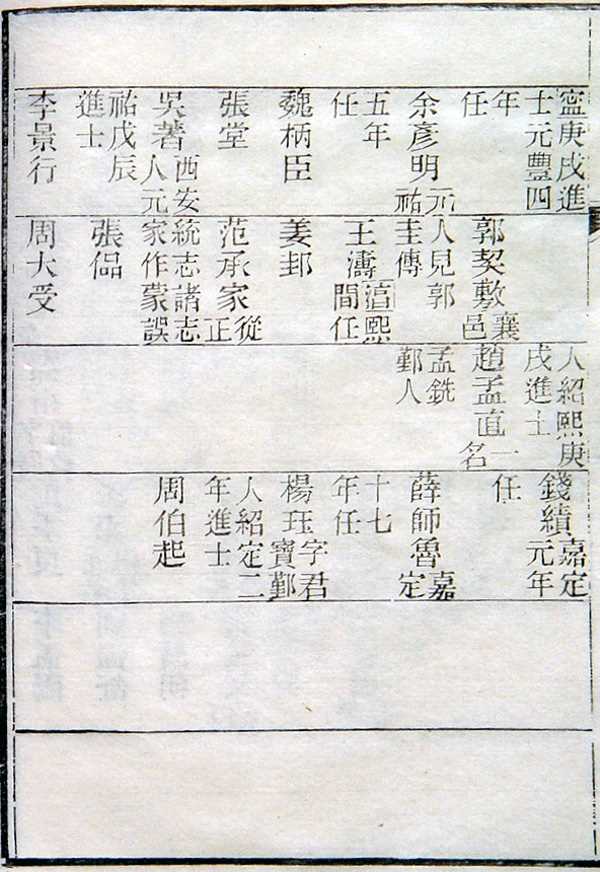 寍庚戌進
士元豐四
年
任
余彥明元祐
五年
任
魏柄臣
張堂
吳著西安人元
祐戊辰
進士
李景行
郭契敷襄邑
人見郭
圭傳
王濤湻熙間任
姜邽
范承家從正
統志諸志
家作蒙誤
張
周大受
人紹熙庚
戌進士
趙孟直一名
孟銑
鄞人
錢績嘉定元年
任
薛師魯嘉定
十七
年任
楊玨字君寶鄞
人紹定二
年進士
周伯起